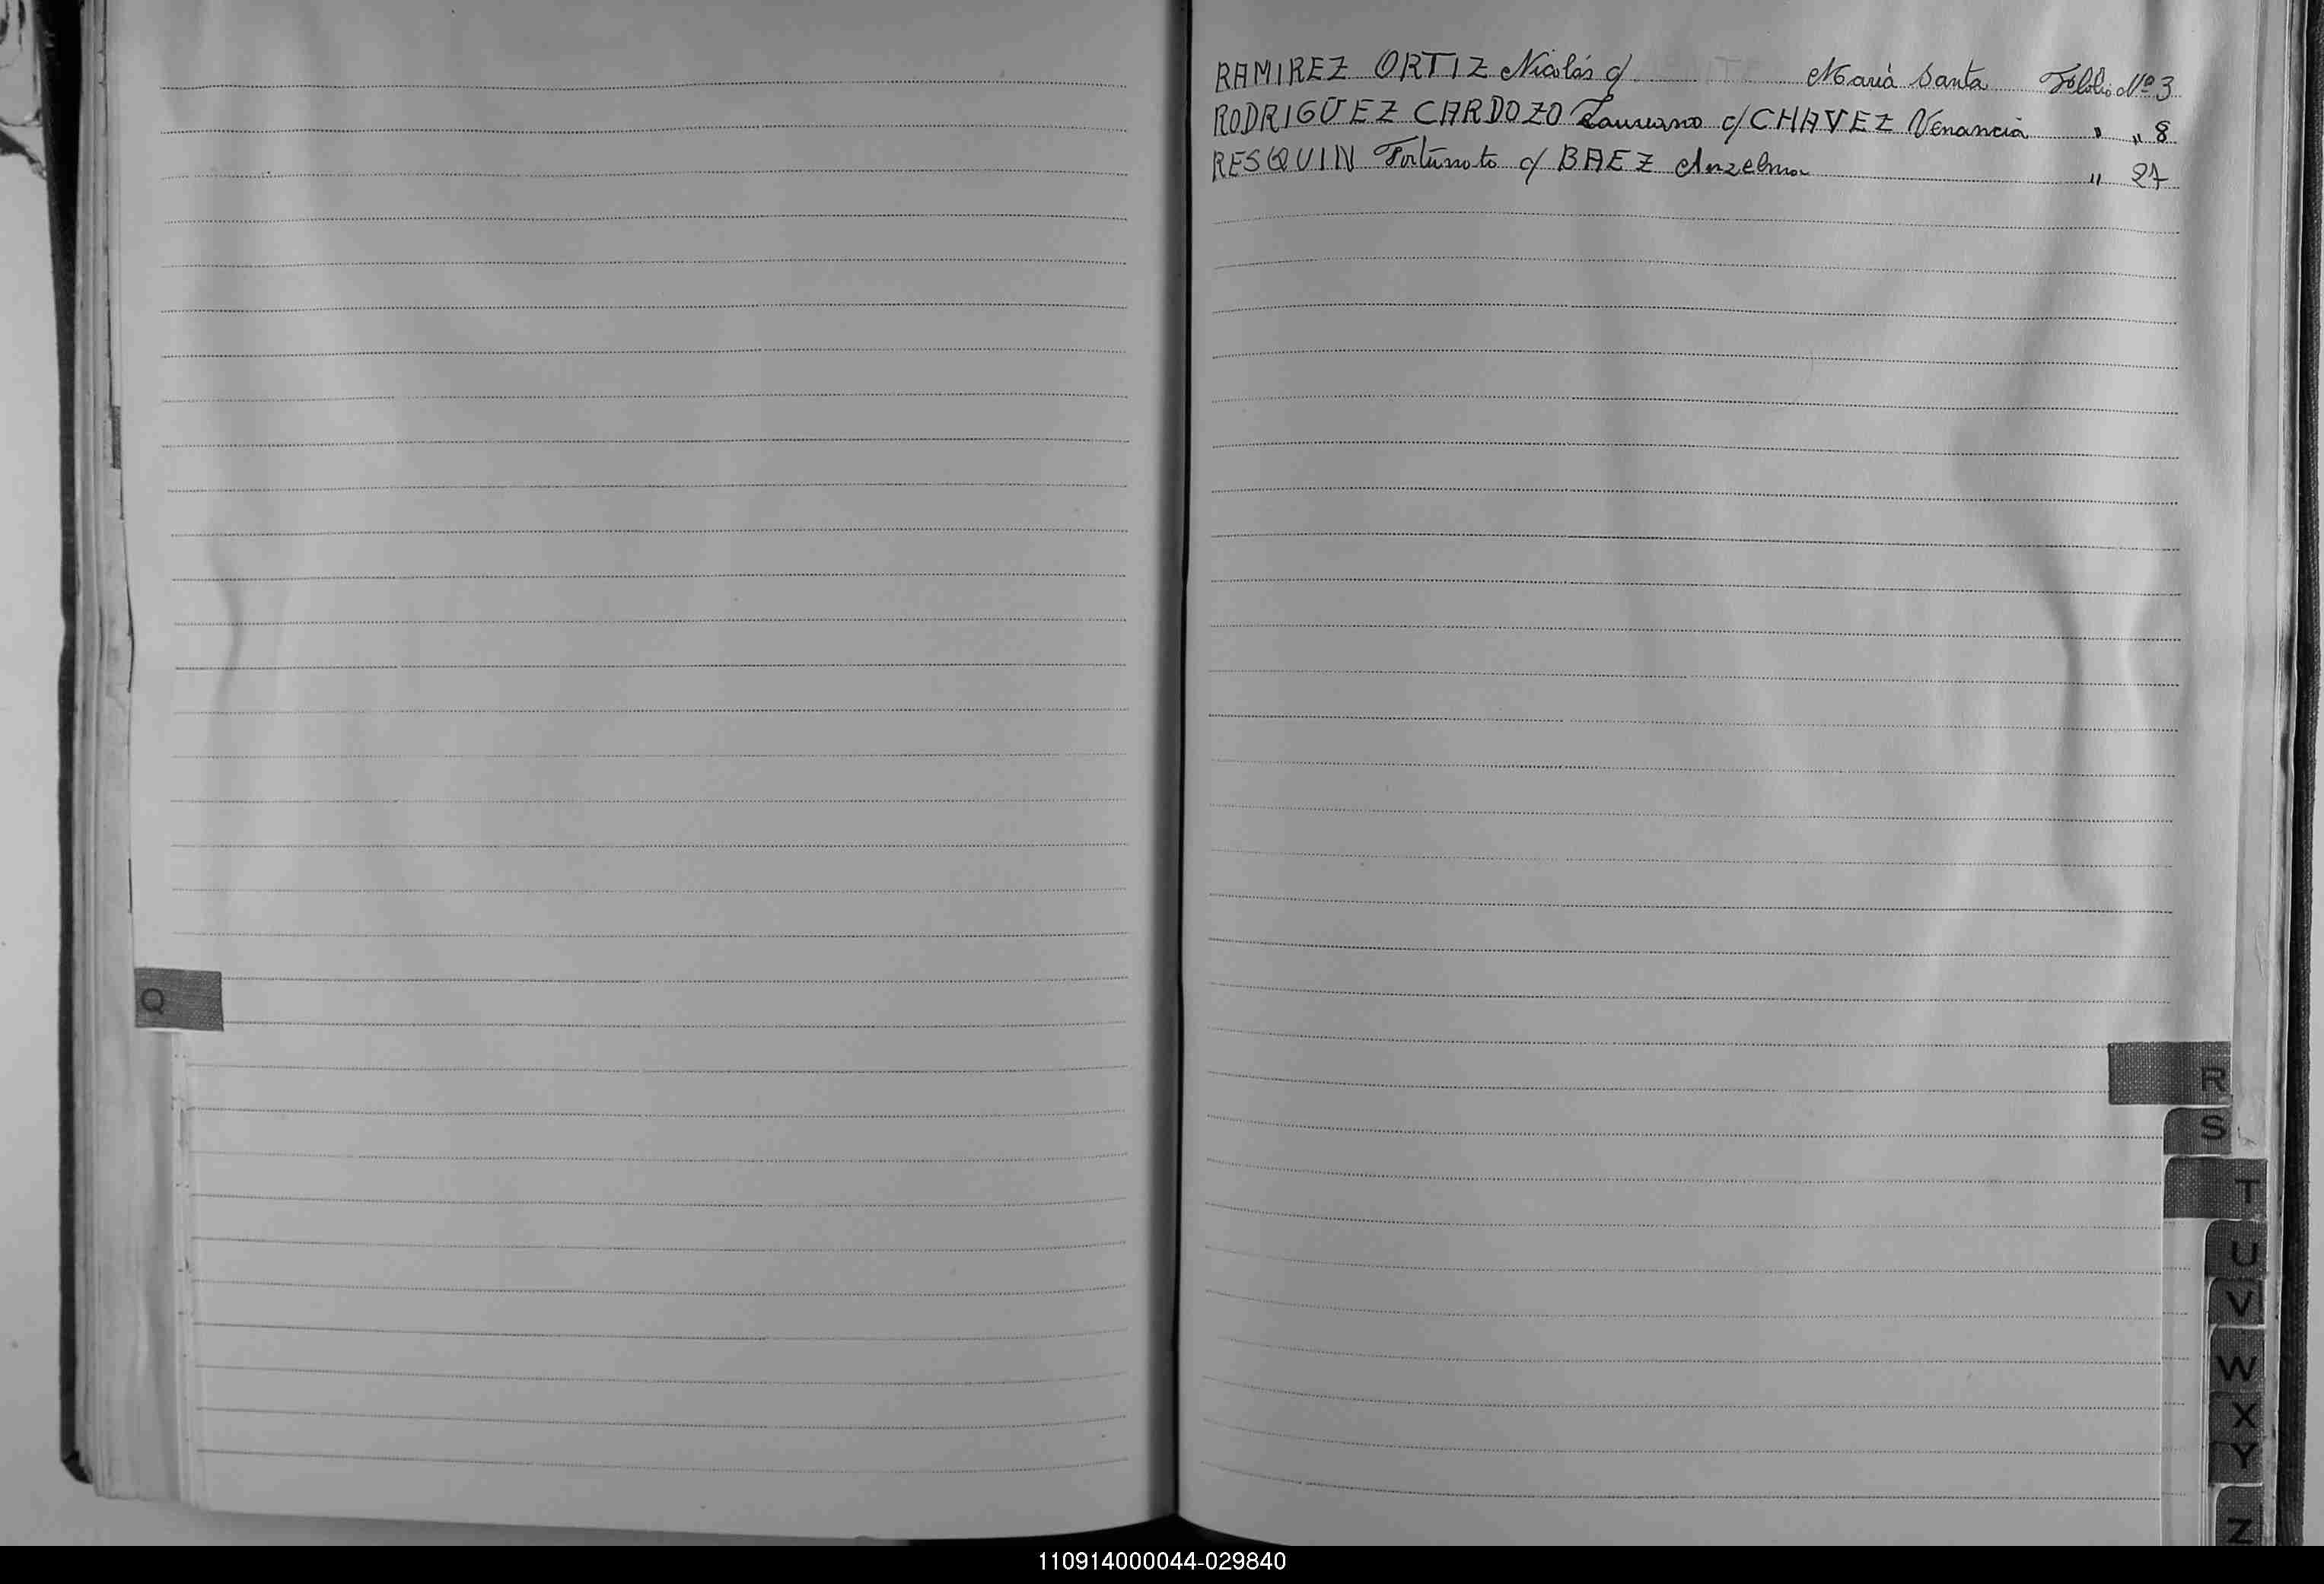 RAMIREZ ORTIZ Nicolás c/ María Santa Folio Nº 3
RODRIGUEZ CARDOZO Laureano c/ CHAVEZ Venancia " " 8
RESQUIN Fortunato c/ BAEZ Anzelma " 27
Q
R
S
T
U
V
W
X
Y
Z
110914000044-029840